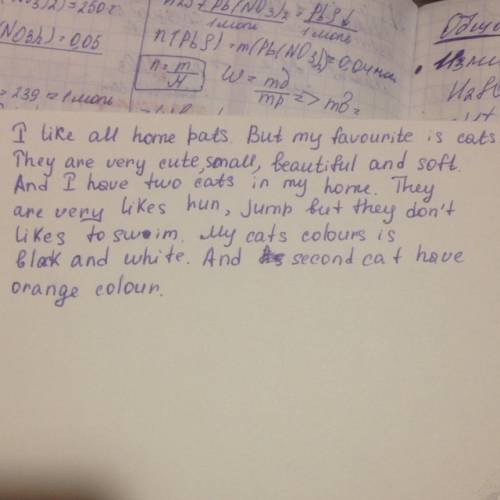 (NO3)2) = 260 г
Pb(NO3)2 = PbS↓
1 моль 1 моль
(NO3)2 = 0,05
n(PbS) = m(Pb(NO3)2) = 0,04 моль
n = m/M
W = mд/mр => mд =
= 239 = 1 моль
I like all home pats. But my favourite is cats.
They are very cute, small, beautiful and soft.
And I have two cats in my home. They
are very likes hun, jump but they don't
likes to sweim. My cats colours is
black and white. And second cat have
orange colour.